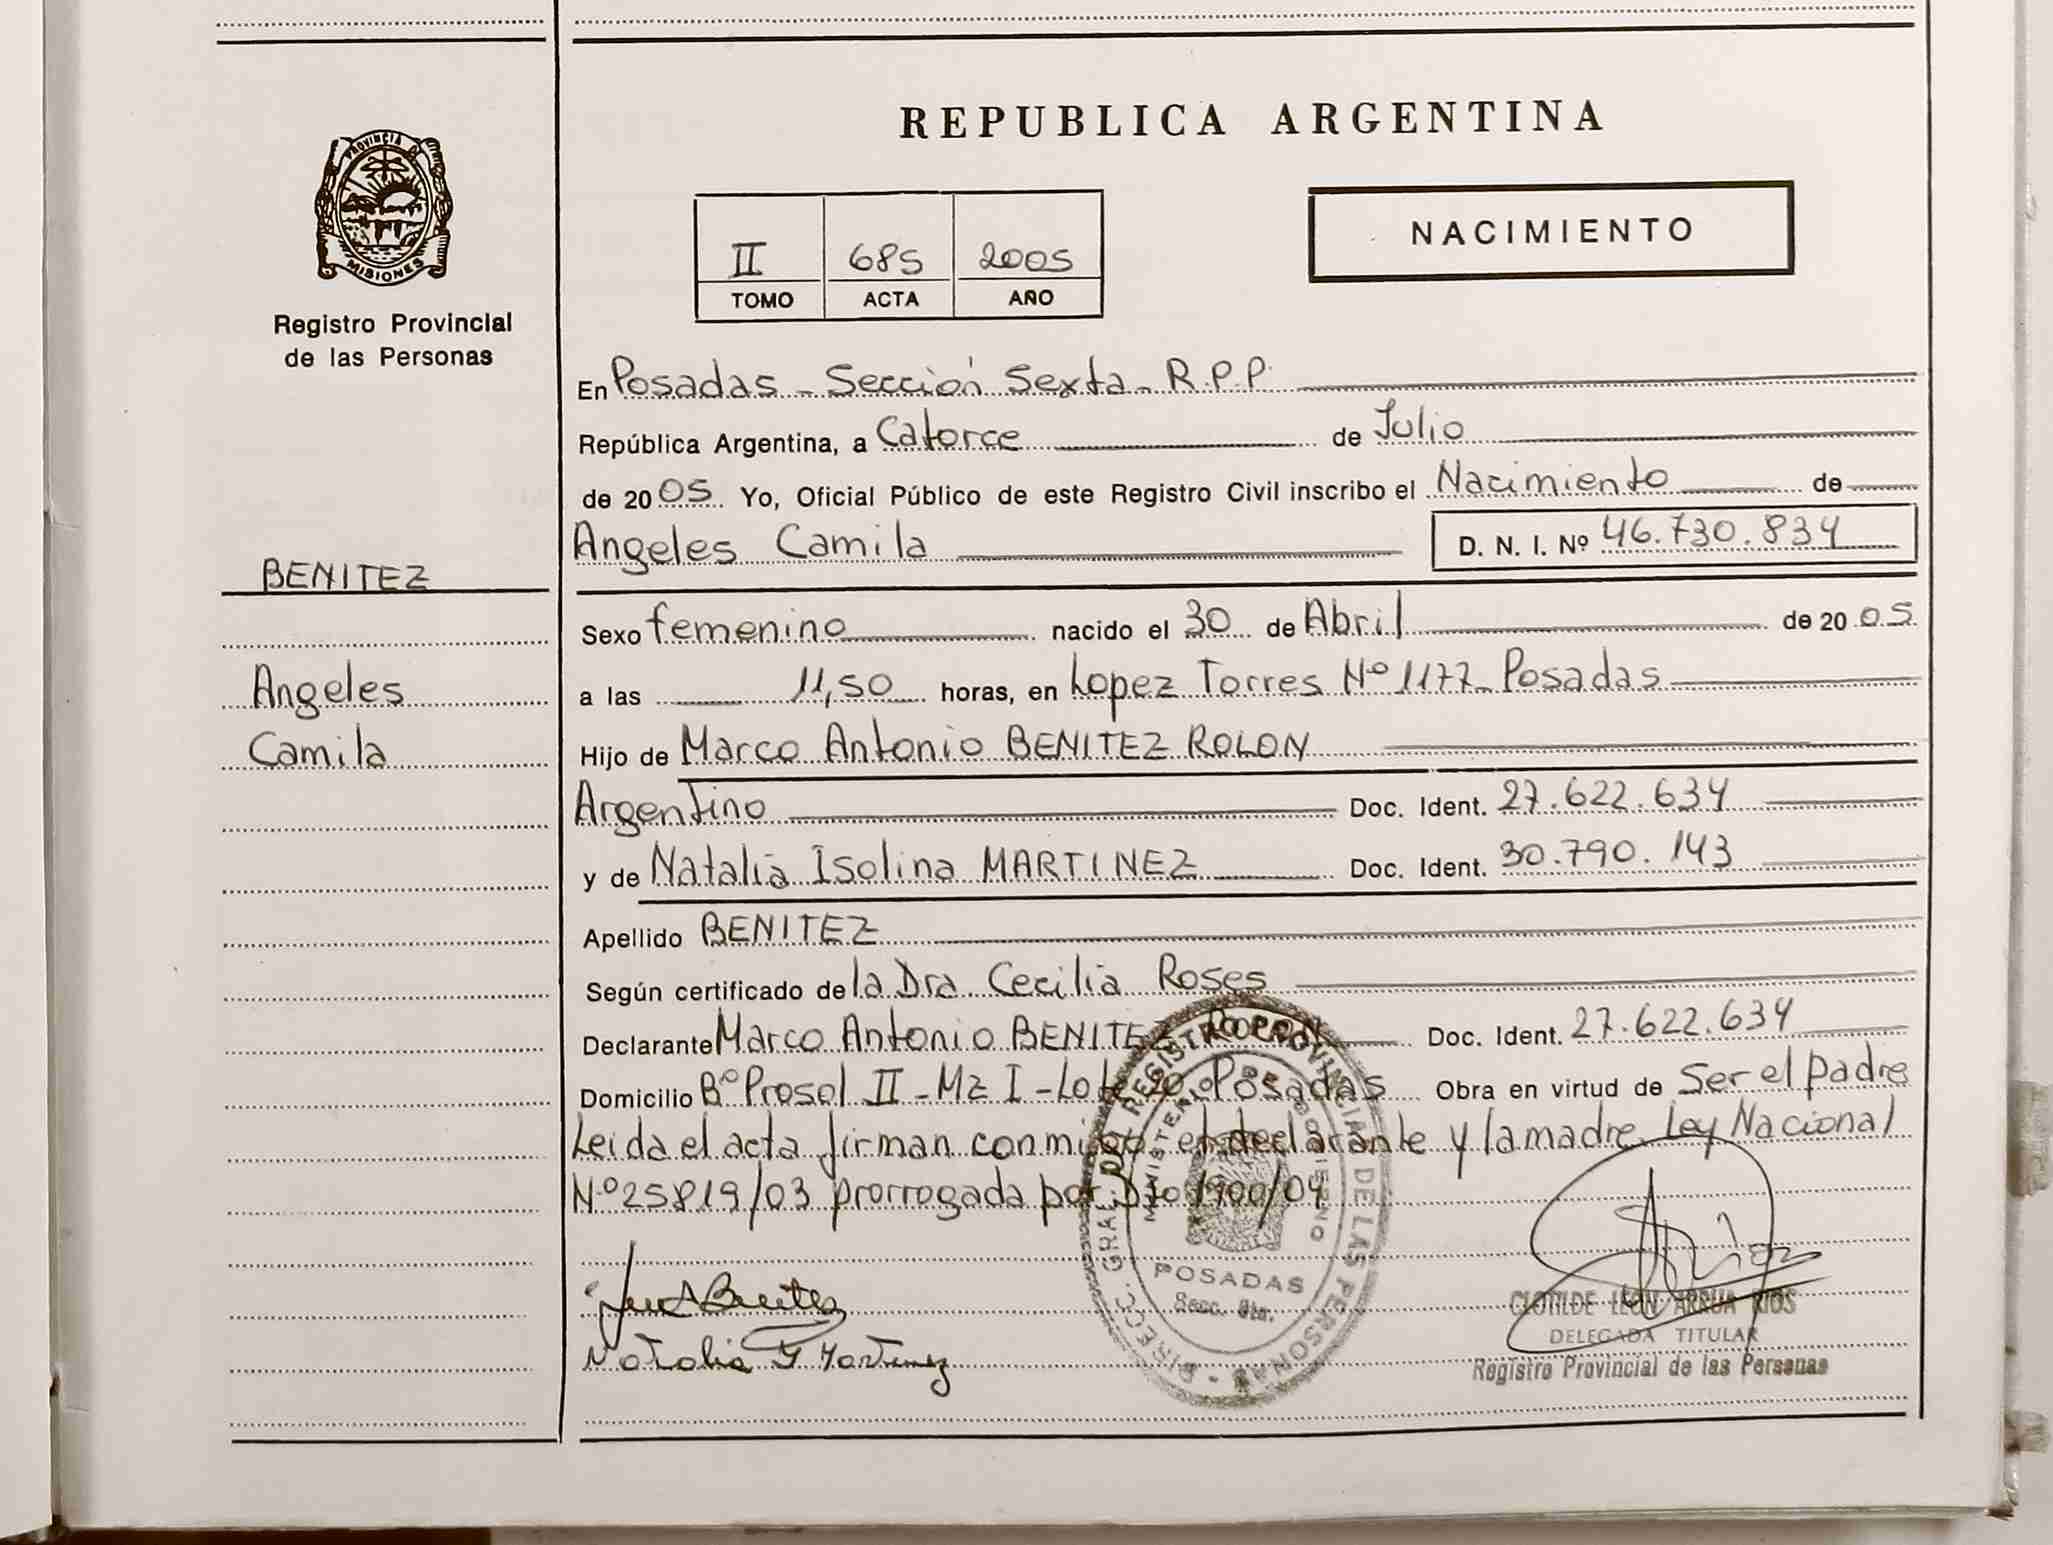 REPUBLICA ARGENTINA
PROVINCIA DE
MISIONES
Registro Provincial
de las Personas
II 685 2005
TOMO ACTA AÑO
NACIMIENTO
En Posadas - Sección Sexta - R.P.P.
República Argentina, a Catorce de Julio
de 20 05 Yo, Oficial Público de este Registro Civil inscribo el Nacimiento de
Angeles Camila D. N. I. Nº 46.730.834
BENITEZ
Sexo femenino nacido el 30 de Abril de 20 05
Angeles
a las 11,50 horas, en Lopez Torres Nº 1177 - Posadas
Camila
Hijo de Marco Antonio BENITEZ ROLON
Argentino Doc. Ident. 27.622.634
y de Natalia Isolina MARTINEZ Doc. Ident. 30.790.143
Apellido BENITEZ
Según certificado de la Dra. Cecilia Roses
Declarante Marco Antonio BENITEZ ROLON Doc. Ident. 27.622.634
Domicilio Bº Prosol II - Mz I - Lote 20 Posadas Obra en virtud de Ser el padre
Leida el acta firman conmigo el declarante y la madre. Ley Nacional
Nº 25819/03 prorrogada por Dto 1900/04
DIREC. GRAL. DEL REGISTRO PROVINCIAL DE LAS PERSONAS
MINISTERIO DE GOBIERNO
POSADAS
Secc. 6ta.
Natalia I Martinez
CLOTILDE LEON ARRUA RIOS
DELEGADA TITULAR
Registro Provincial de las Personas